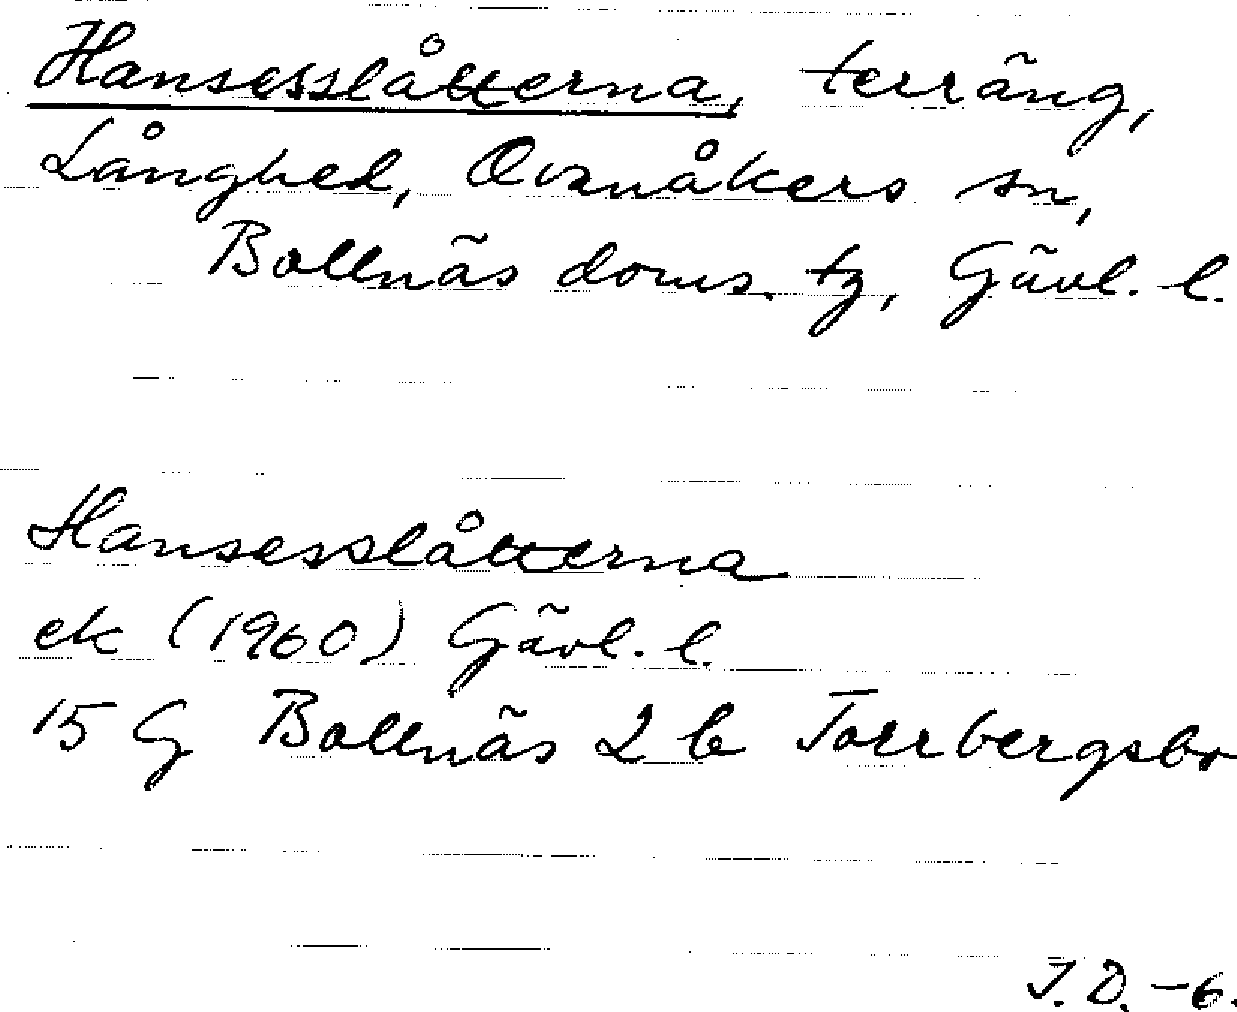 Hansesslåtterna, terräng,
Långhed, Ovanåkers sn,
Bollnäs doms. tg, Gävl. l.
Hansesslåtterna
ek (1960) Gävl. l.
15 G Bollnäs 2 b
J. D. -6.